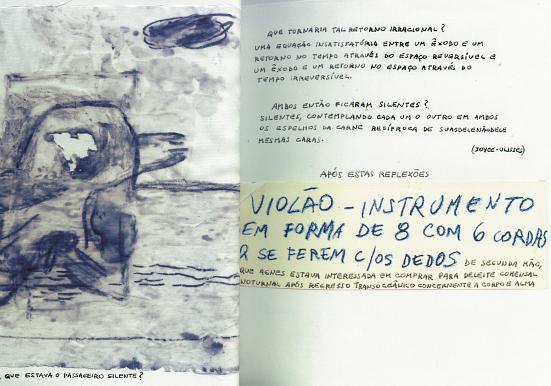 QUE TORNARIA TAL RETORNO IRRACIONAL?
UMA EQUAÇÃO INSATISFATÓRIA ENTRE UM ÊXODO E UM
RETORNO NO TEMPO ATRAVÉS DO ESPAÇO REVERSÍVEL E
UM ÊXODO E UM RETORNO NO ESPAÇO ATRAVÉS DO
TEMPO IRREVERSÍVEL.
AMBOS ENTÃO FICARAM SILENTES?
SILENTES, CONTEMPLANDO CADA UM O OUTRO EM AMBOS
OS ESPELHOS DA CARNE RECÍPROCA DE SUASDELENÃODELE
MESMAS CARAS.
(JOYCE-ULISSES)
APÓS ESTAS REFLEXÕES
VIOLÃO - INSTRUMENTO
EM FORMA DE 8 COM 6 CORDAS
Q SE FEREM C/OS DEDOS DE SEGUNDA MÃO,
QUE AGNES ESTAVA INTERESSADA EM COMPRAR PARA DELEITE COMENSAL
NOTURNAL APÓS REGRESSO TRANSOCEÂNICO CONCERNENTE A CORPO E ALMA
QUE ESTAVA O PASSAGEIRO SILENTE?